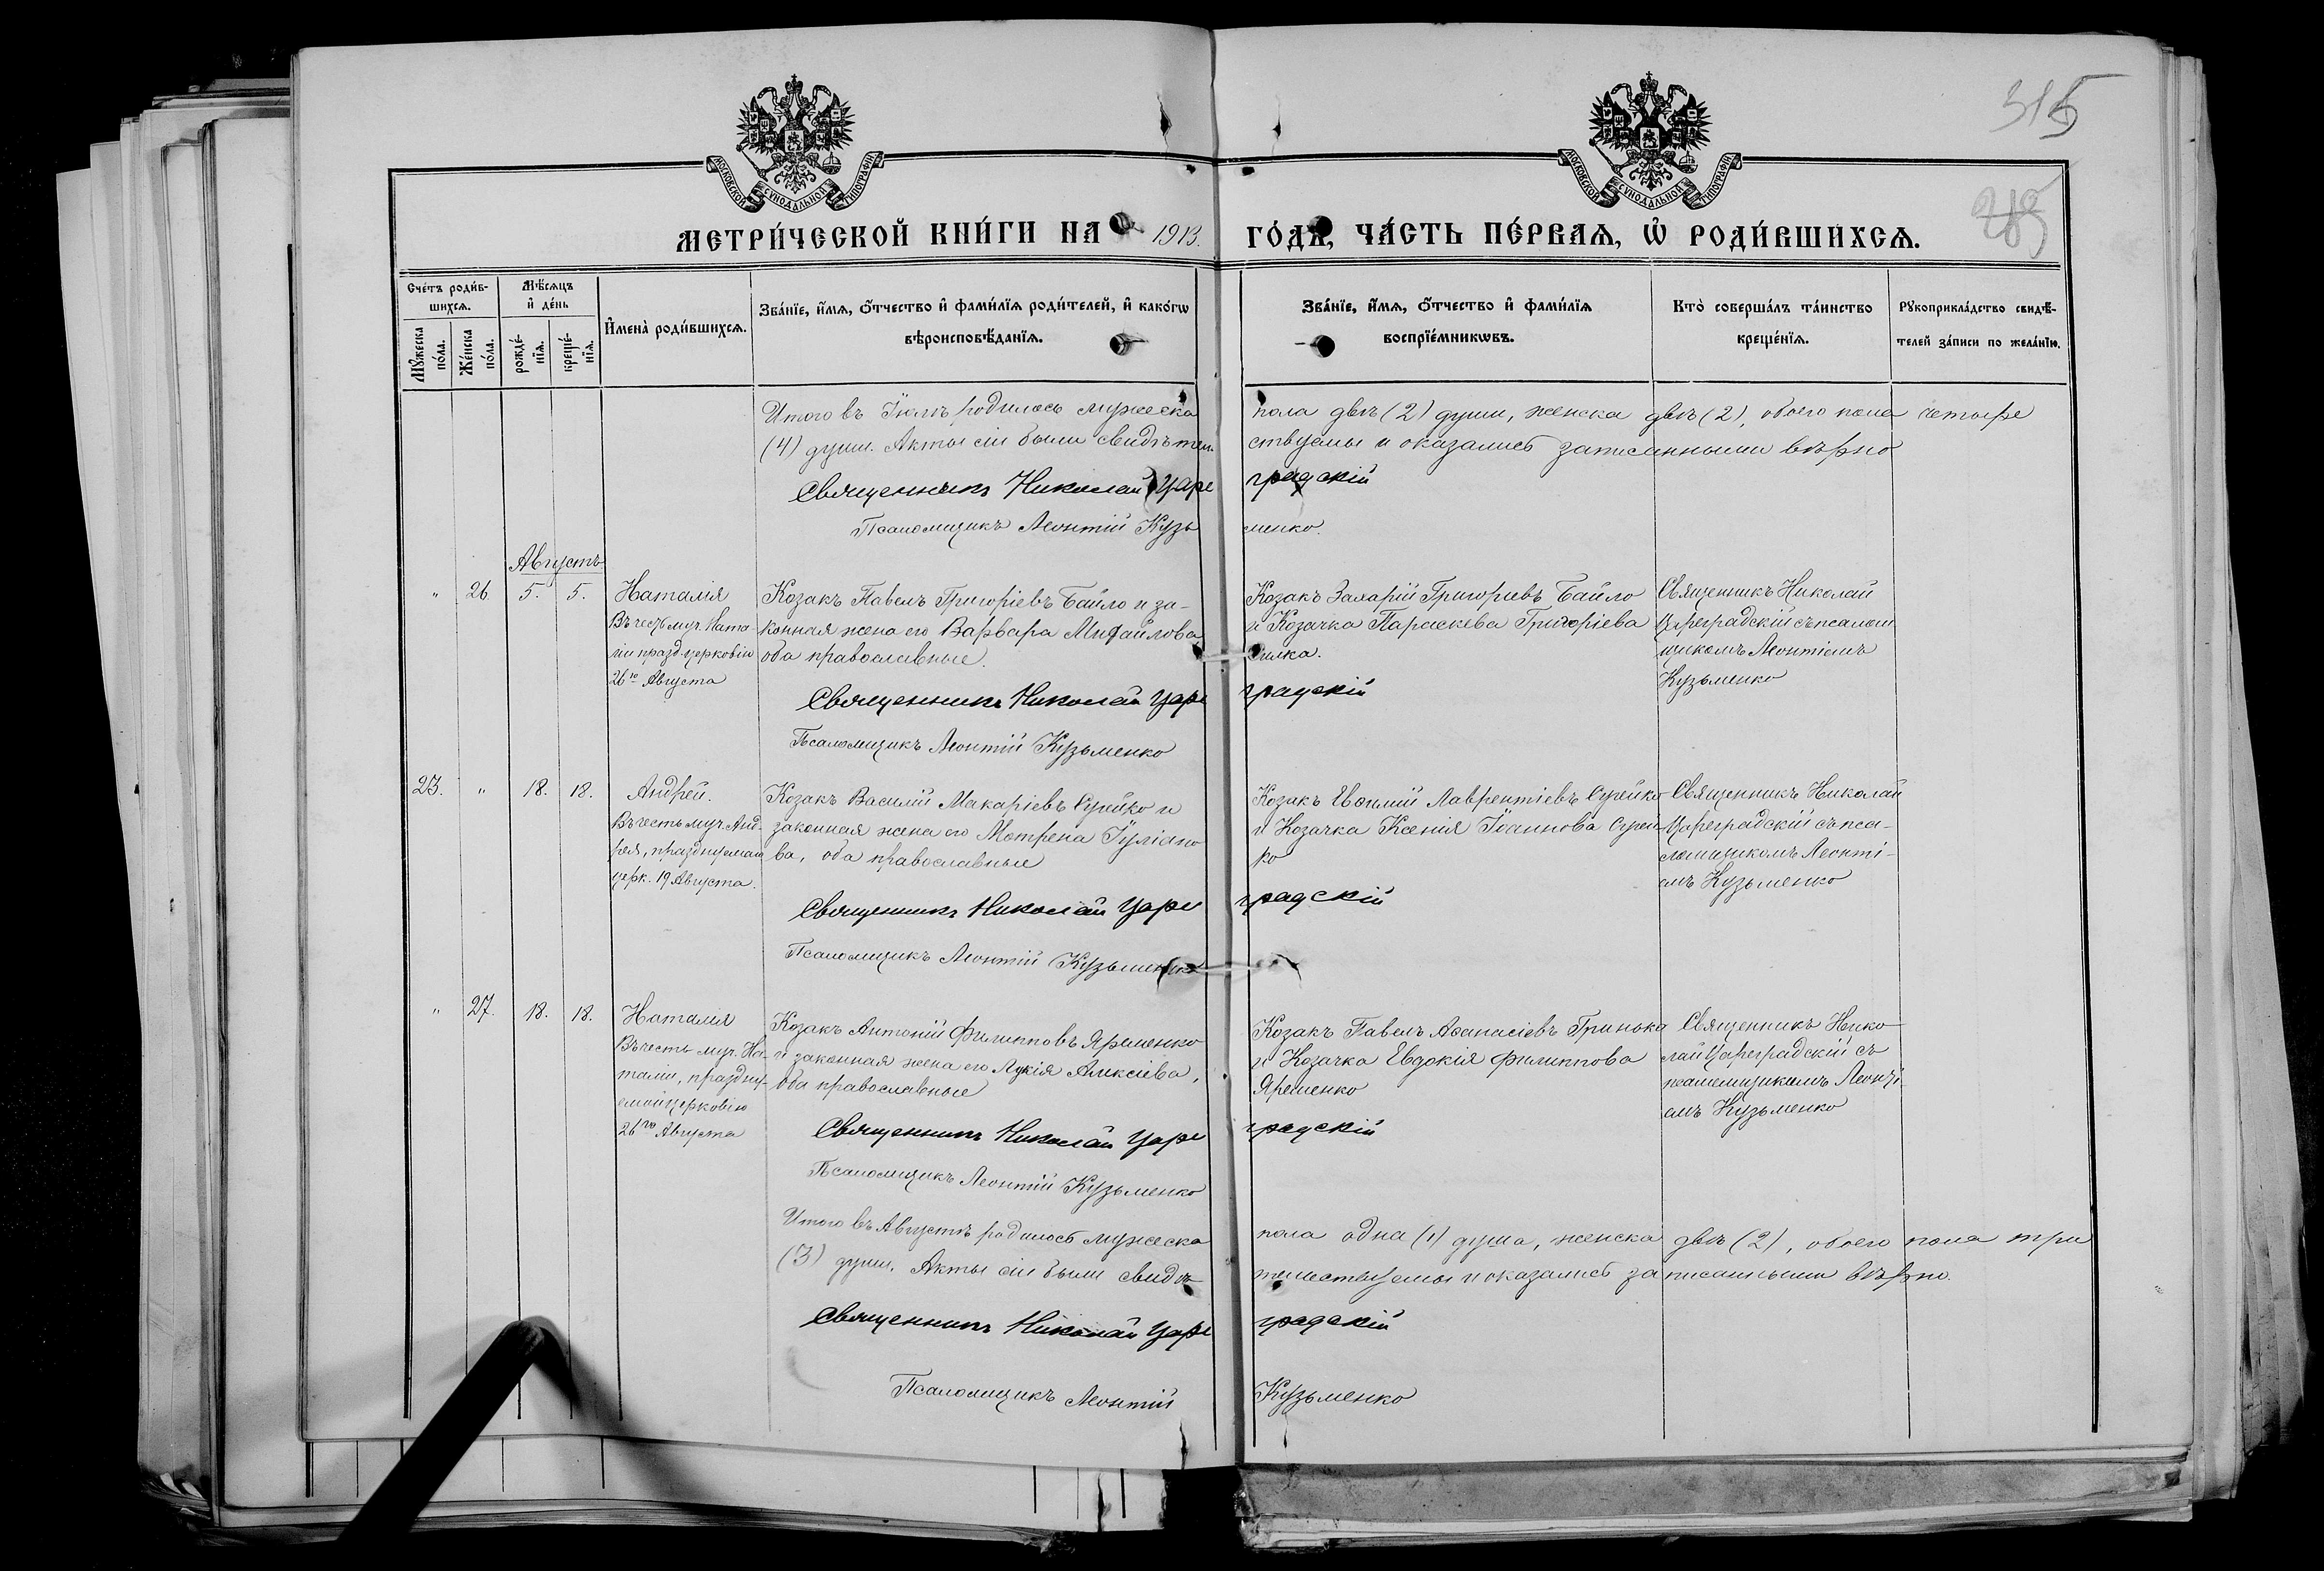 315
289
МОСКОВСКОЙ СУНОДАЛЬНОЙ ТИПОГРАФІИ
МОСКОВСКОЙ СУНОДАЛЬНОЙ ТИПОГРАФІИ
МЕТРИ́ЧЕСКОЙ КНИ́ГИ НА 1913. ГО́ДЪ, ЧА́СТЬ ПЕ́РВАѦ, Ѡ҆ РОДИ́ВШИХСѦ.
Сче́тъ роди́в-
шихсѧ.
Мѣ́сѧцъ
и҆ де́нь
Мꙋ́жеска
по́ла.
Же́нска
по́ла.
рожде́-
нїѧ.
креще́-
нїѧ.
И҆мена̀ роди́вшихсѧ.
Зва́нїе, и҆́мѧ, ѻ҆́тчество и҆ фами́лїѧ роди́телей, и҆ како́гѡ
вѣроисповѣ́данїѧ.
Зва́нїе, и҆́мѧ, ѻ҆́тчество и҆ фами́лїѧ
воспрїе́мникѡвъ.
Кто̀ соверша́лъ та́инство
креще́нїѧ.
Рꙋкоприкла́дство свидѣ́-
телей за́писи по жела́нїю.
Итого въ Іюлѣ родилось мужеска пола двѣ (2) души, женска двѣ (2), обоего пола четыре
(4) души. Акты сіи были свидѣтель ствуемы и оказались записанными вѣрно
Священникъ Николай Царе градскій
Псаломщикъ Леонтій Кузь менко.
Августъ
" 26. 5. 5.
Наталія
Въ честь муч. Ната-
ліи празд. церковію
26го Августа
Козакъ Павелъ Григоріевъ Байло и за-
конная жена его Варвара Михайлова
оба православные.
Козакъ Захарій Григорьевъ Байло
и Козачка Параскева Григоріева
Силка.
Священникъ Николай
Цареградскій съ псалом
щикомъ Леонтіемъ
Кузьменко
Священникъ Николай Царе градскій
Псаломщикъ Леонтій Кузьменко
23. " 18. 18.
Андрей.
Въ честь муч. Анд-
рея, празднуемаго
церк. 19 Августа.
Козакъ Василій Макаріевъ Сурейко и
законная жена его Мотрена Іуліано
ва, оба православные
Козакъ Евѳимій Лаврентіевъ Сурейко
и Козачка Ксенія Іоаннова Сурей
ко
Священникъ Николай
Цареградскій съ пса-
ломщикомъ Леонті-
емъ Кузьменко
Священникъ Николай Царе градскій
Псаломщикъ Леонтій Кузьменко
" 27. 18. 18.
Наталія
Въ честь муч. На-
таліи, праздну-
емой церковію
26го Августа
Козакъ Антоній Филипповъ Яременко
и законная жена его Лукія Алексіева,
Оба православные
Козакъ Павелъ Аѳанасіевъ Гринько
и Козачка Евдокія Филиппова
Яременко
Священникъ Нико
лай Цареградскій съ
псаломщикомъ Леонті-
емъ Кузьменко
Священникъ Николай Царе градскій
Псаломщикъ Леонтій Кузьменко
Итого въ Августѣ родилось мужеска пола одна (1) душа, женска двѣ (2), обоего пола три
(3) души. Акты сіи были свидѣ тельствуемы и оказались записаными вѣрно.
Священникъ Николай Царе градскій
Псаломщикъ Леонтій Кузьменко